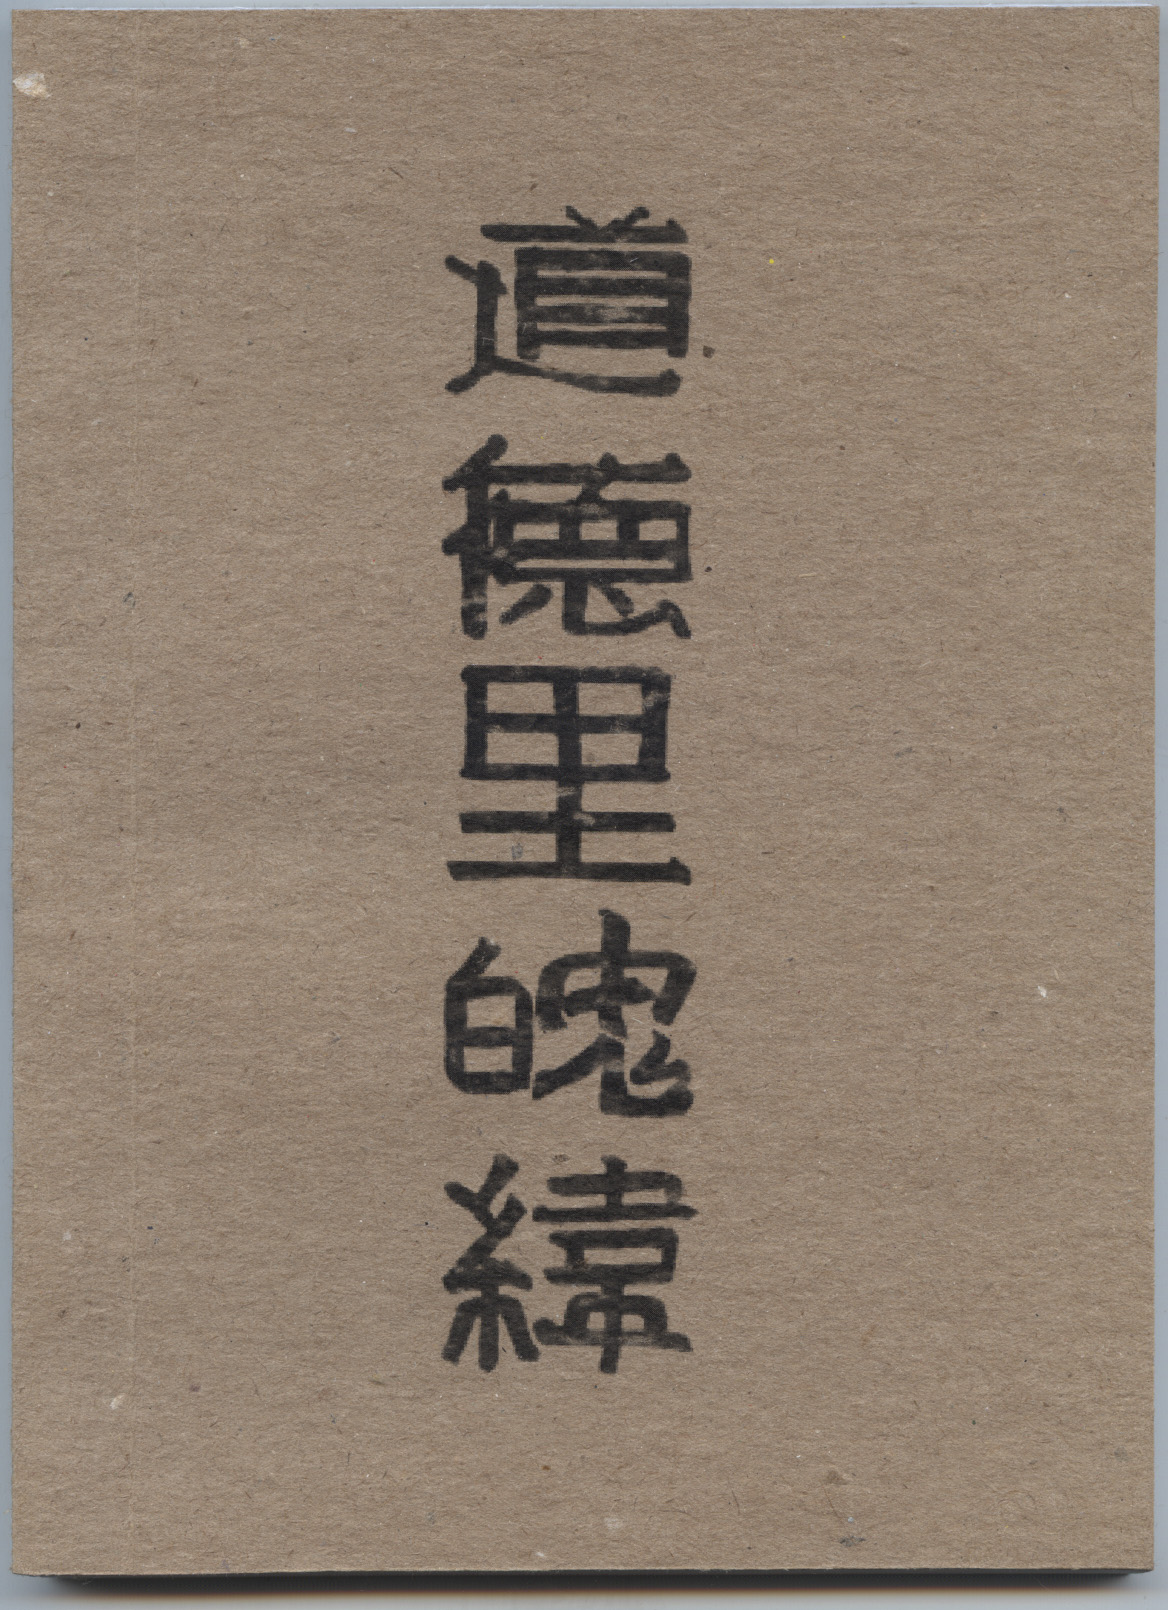 道德里魄緯